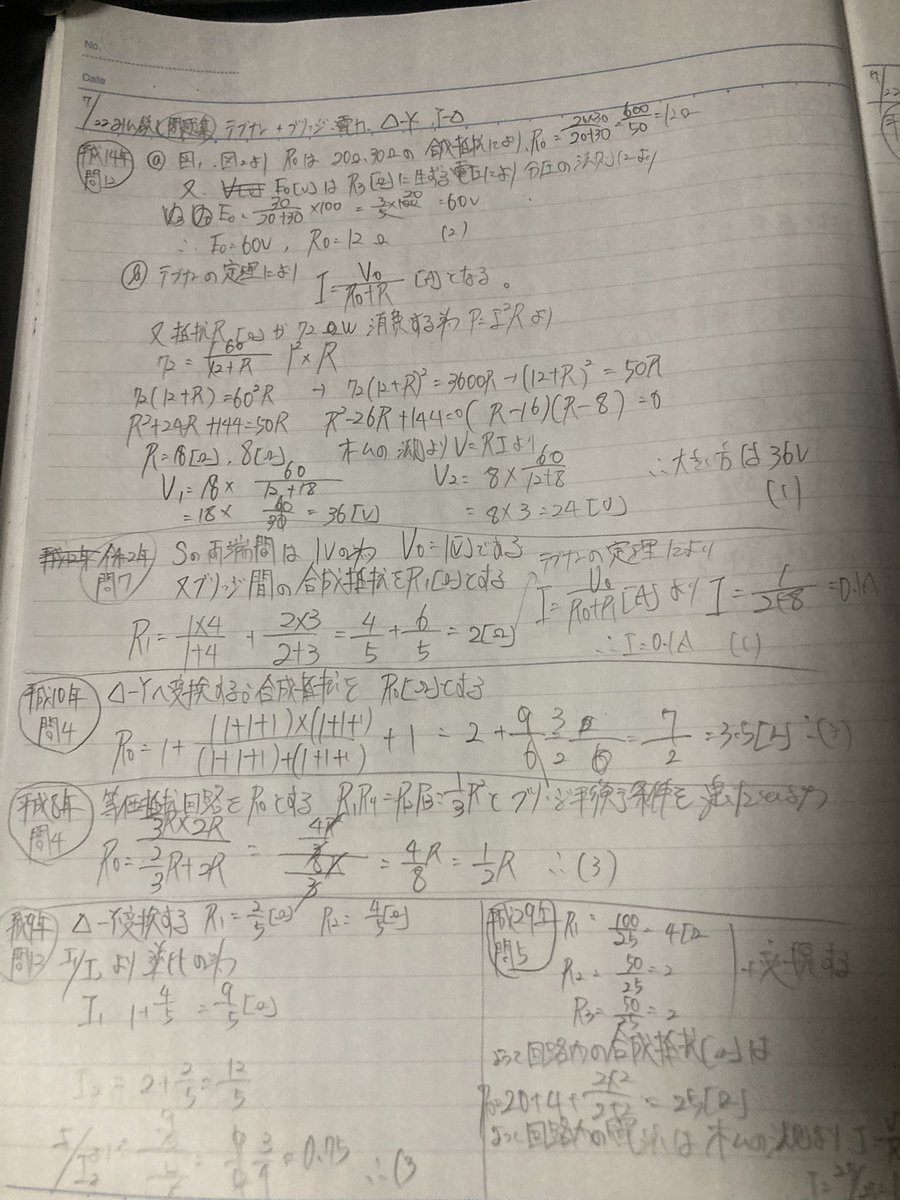 No.
Date
7/22 みん欲し問題集 テブナン+ブリッジ、電力、Δ-Y、Y-Δ
平成14年 問12
ⓐ 図1、図2より R₀は20Ω,30Ωの合成抵抗により、R₀=20×30/20+30=600/50=12Ω
又、E₀[V]はR₃[Ω]に生ずる電圧により分圧の法則により
E₀=30/20+30×100=3/5×100=60V
∴E₀=60V, R₀=12Ω (2)
ⓑ テブナンの定理により I=V₀/R₀+R [A]となる。
又抵抗R[Ω]が72 W 消費する為 P=I²Rより
72=|60/12+R|²×R
72(12+R)=60²R → 72(12+R)²=3600R→(12+R)²=50R
R²+24R+144=50R R²-26R+144=0 (R-16)(R-8)=0
R=18[Ω], 8[Ω] オームの法則よりV=RIより
V₁=18×60/12+18 V₂=8×60/12+8 ∴大きい方は36V
=18×60/30=36[V] =8×3=24[V] (1)
令和2年 問7
Sの両端間は1Vの為 V₀=1[V]である
又ブリッジ間の合成抵抗をR₁[Ω]とする
R₁=1×4/1+4+2×3/2+3=4/5+6/5=2[Ω]
テブナンの定理により
I=V₀/R₀+R₁[A]より I=1/2+8=0.1A
∴I=0.1A (1)
平成10年 問4
Δ-Yへ変換する。合成抵抗を R₀[Ω]とする
R₀=1+(1+1+1)×(1+1+1)/(1+1+1)+(1+1+1)+1=2+9/6=7/2=3.5[Ω] ∴(3)
平成8年 問4
等価抵抗回路をR₀とする R₁R₄=R₂R₃=1/3R²とブリッジ平衡条件を満たしている為
R₀=2/3R×2R/2/3R+2R=4/8R=1/2R ∴(3)
平成9年 問12
Δ-Y変換する R₁=2/5[Ω] R₂=4/5[Ω]
I₁/I₂より逆比の為
I₁ 1+4/5=9/5[Ω]
I₂=2+2/5=12/5
I₁/I₂=3/4=0.75 ∴(3
平成29年 問5
R₁=100/25=4[Ω
R₂=50/25=2
R₃=50/25=2
変換する
よって回路内の合成抵抗[Ω]は
R₀=20+4+2×2/2+2=25[Ω]
よって回路内の電流はオームの法則より I=